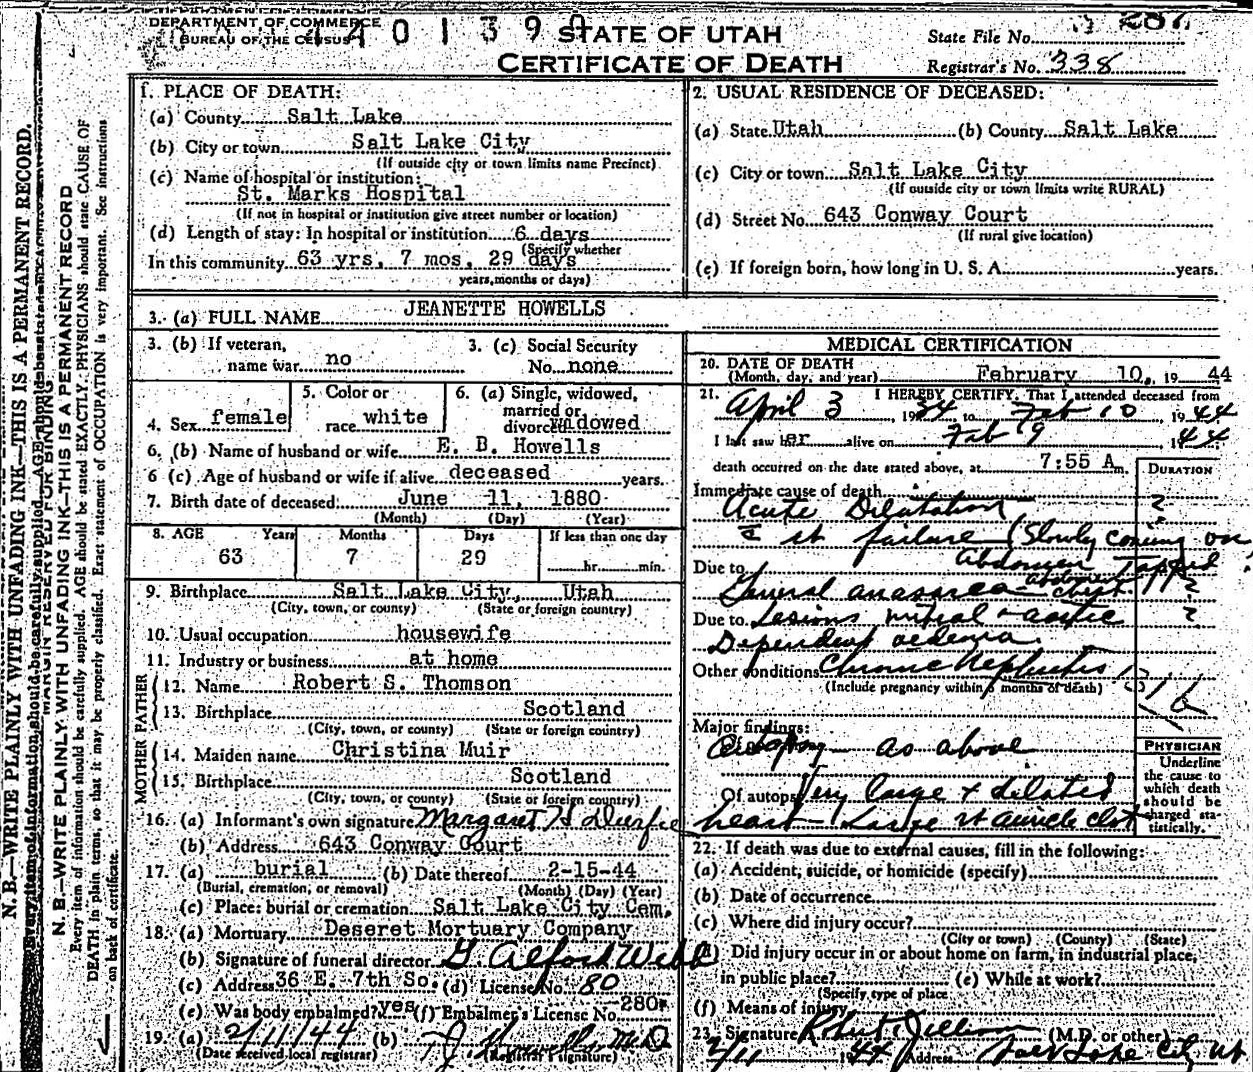 DEPARTMENT OF COMMERCE
BUREAU OF THE CENSUS
4 0 1 3 9 0
STATE OF UTAH
CERTIFICATE OF DEATH
State File No.
Registrar's No. 338
1. PLACE OF DEATH:
(a) County Salt Lake
(b) City or town Salt Lake City
(If outside city or town limits name Precinct)
(c) Name of hospital or institution:
St. Marks Hospital
(If not in hospital or institution give street number or location)
(d) Length of stay: In hospital or institution 6 days
(Specify whether
In this community 63 yrs. 7 mos. 29 days
years, months or days)
2. USUAL RESIDENCE OF DECEASED:
(a) State Utah (b) County Salt Lake
(c) City or town Salt Lake City
(If outside city or town limits write RURAL)
(d) Street No. 643 Conway Court
(If rural give location)
(e) If foreign born, how long in U. S. A. years.
3. (a) FULL NAME JEANETTE HOWELLS
3. (b) If veteran,
name war no
3. (c) Social Security
No. none
4. Sex female
5. Color or
race white
6. (a) Single, widowed,
married or
divorced widowed
6. (b) Name of husband or wife E. B. Howells
6 (c) Age of husband or wife if alive deceased years.
7. Birth date of deceased: June 11, 1880
(Month) (Day) (Year)
8. AGE Years Months Days If less than one day
63 7 29 hr. min.
9. Birthplace Salt Lake City, Utah
(City, town, or county) (State or foreign country)
10. Usual occupation housewife
11. Industry or business at home
FATHER
12. Name Robert S. Thomson
13. Birthplace Scotland
(City, town, or county) (State or foreign country)
MOTHER
14. Maiden name Christina Muir
15. Birthplace Scotland
(City, town, or county) (State or foreign country)
16. (a) Informant's own signature Margaret H Durfee
(b) Address 643 Conway Court
17. (a) burial (b) Date thereof 2-15-44
(Burial, cremation, or removal) (Month) (Day) (Year)
(c) Place: burial or cremation Salt Lake City Cem.
18. (a) Mortuary Deseret Mortuary Company
(b) Signature of funeral director G. Alford Webb
(c) Address 36 E. 7th So. (d) License No. 80
(e) Was body embalmed? yes (f) Embalmer's License No. 280
19. (a) 2/11/44 (b) T.J. Howells M.D.
(Date received local registrar) (Registrar signature)
MEDICAL CERTIFICATION
20. DATE OF DEATH
(Month, day, and year) February 10, 19 44
21. I HEREBY CERTIFY, That I attended deceased from
April 3 1934 to Feb 10 1944
I last saw her alive on Feb 9 1944
death occurred on the date stated above, at 7:55 A m.
DURATION
Immediate cause of death
Acute Dilatation ?
failure (Slowly coming on
Abdomen Tapped
Due to
General anasarca abdomen chest ?
Due to Lesions mitral + aortic ?
Dependent oedema
Other conditions Chronic Nephritis
(Include pregnancy within 3 months of death)
131b
Major findings:
as above
Of autopsy Very large + dilated
heart Large rt auricle clot
PHYSICIAN
Underline
the cause to
which death
should be
charged sta-
tistically.
22. If death was due to external causes, fill in the following:
(a) Accident, suicide, or homicide (specify)
(b) Date of occurrence
(c) Where did injury occur?
(City or town) (County) (State)
(d) Did injury occur in or about home on farm, in industrial place,
in public place? (e) While at work?
(Specify type of place
(f) Means of injury
23. Signature (M.D. or other)
2/11 1944 Address Salt Lake City Ut
N. B.—WRITE PLAINLY WITH UNFADING INK—THIS IS A PERMANENT RECORD.
MARGIN RESERVED FOR BINDING
N. B.—WRITE PLAINLY, WITH UNFADING INK—THIS IS A PERMANENT RECORD
Every item of information should be carefully supplied. AGE should be stated EXACTLY. PHYSICIANS should state CAUSE OF
DEATH in plain terms, so that it may be properly classified. Exact statement of OCCUPATION is very important. See instructions
on back of certificate.